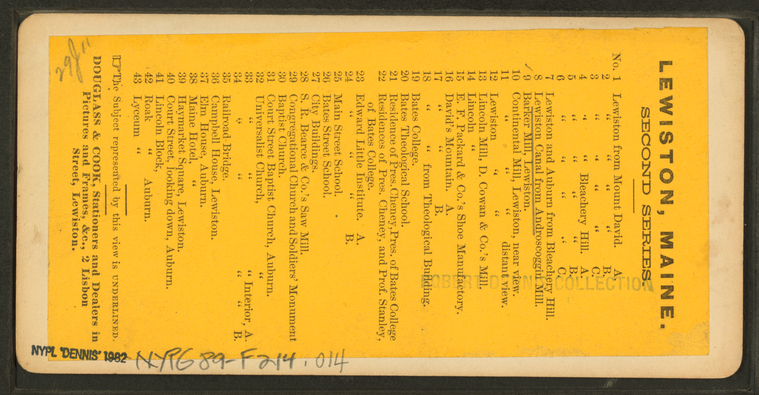 LEWISTON, MAINE.
SECOND SERIES
No. 1 Lewiston from Mount David. A.
2 " " " " B.
3 " " " " C.
4 " " Bleachery Hill. A.
5 " " " " B.
6 " " " " C.
7 Lewiston and Auburn from Bleachery Hill.
8 Lewiston Canal from Androscoggin Mill.
9 Barker Mill, Lewiston.
10 Continental Mill, Lewiston, near view.
11 " " " distant view.
12 Lewiston " "
13 Lincoln Mill, D. Cowan & Co.'s Mill.
14 Lincoln "
15 E. F. Packard & Co.'s Shoe Manufactory.
16 David's Mountain. A.
17 " " B.
18 " " from Theological Building.
19 Bates College.
20 Bates Theological School.
21 Residence of Pres. Cheney, Pres. of Bates College
22 Residences of Pres. Cheney, and Prof. Stanley,
of Bates College.
23 Edward Little Institute. A.
24 " " " B.
25 Main Street School.
26 Bates Street School.
27 City Buildings.
28 S. R. Bearce & Co.'s Saw Mill.
29 Congregational Church and Soldiers' Monument
30 Baptist Church.
31 Court Street Baptist Church, Auburn.
32 Universalist Church, "
33 " " " Interior, A.
34 " " " " B.
35 Railroad Bridge.
36 Campbell House, Lewiston.
37 Elm House, Auburn.
38 Maine Hotel, "
39 Haymarket Square, Lewiston.
40 Court Street, looking down, Auburn.
41 Lincoln Block,
42 Roak " Auburn.
43 Lyceum "
The Subject represented by this view is UNDERLINED.
DOUGLASS & COOK, Stationers and Dealers in
Pictures and Frames, &c., 2 Lisbon
Street, Lewiston.
ROBERT DENNIS COLLECTION
NYPL "DENNIS" 1982
NYPG 89-F214.014